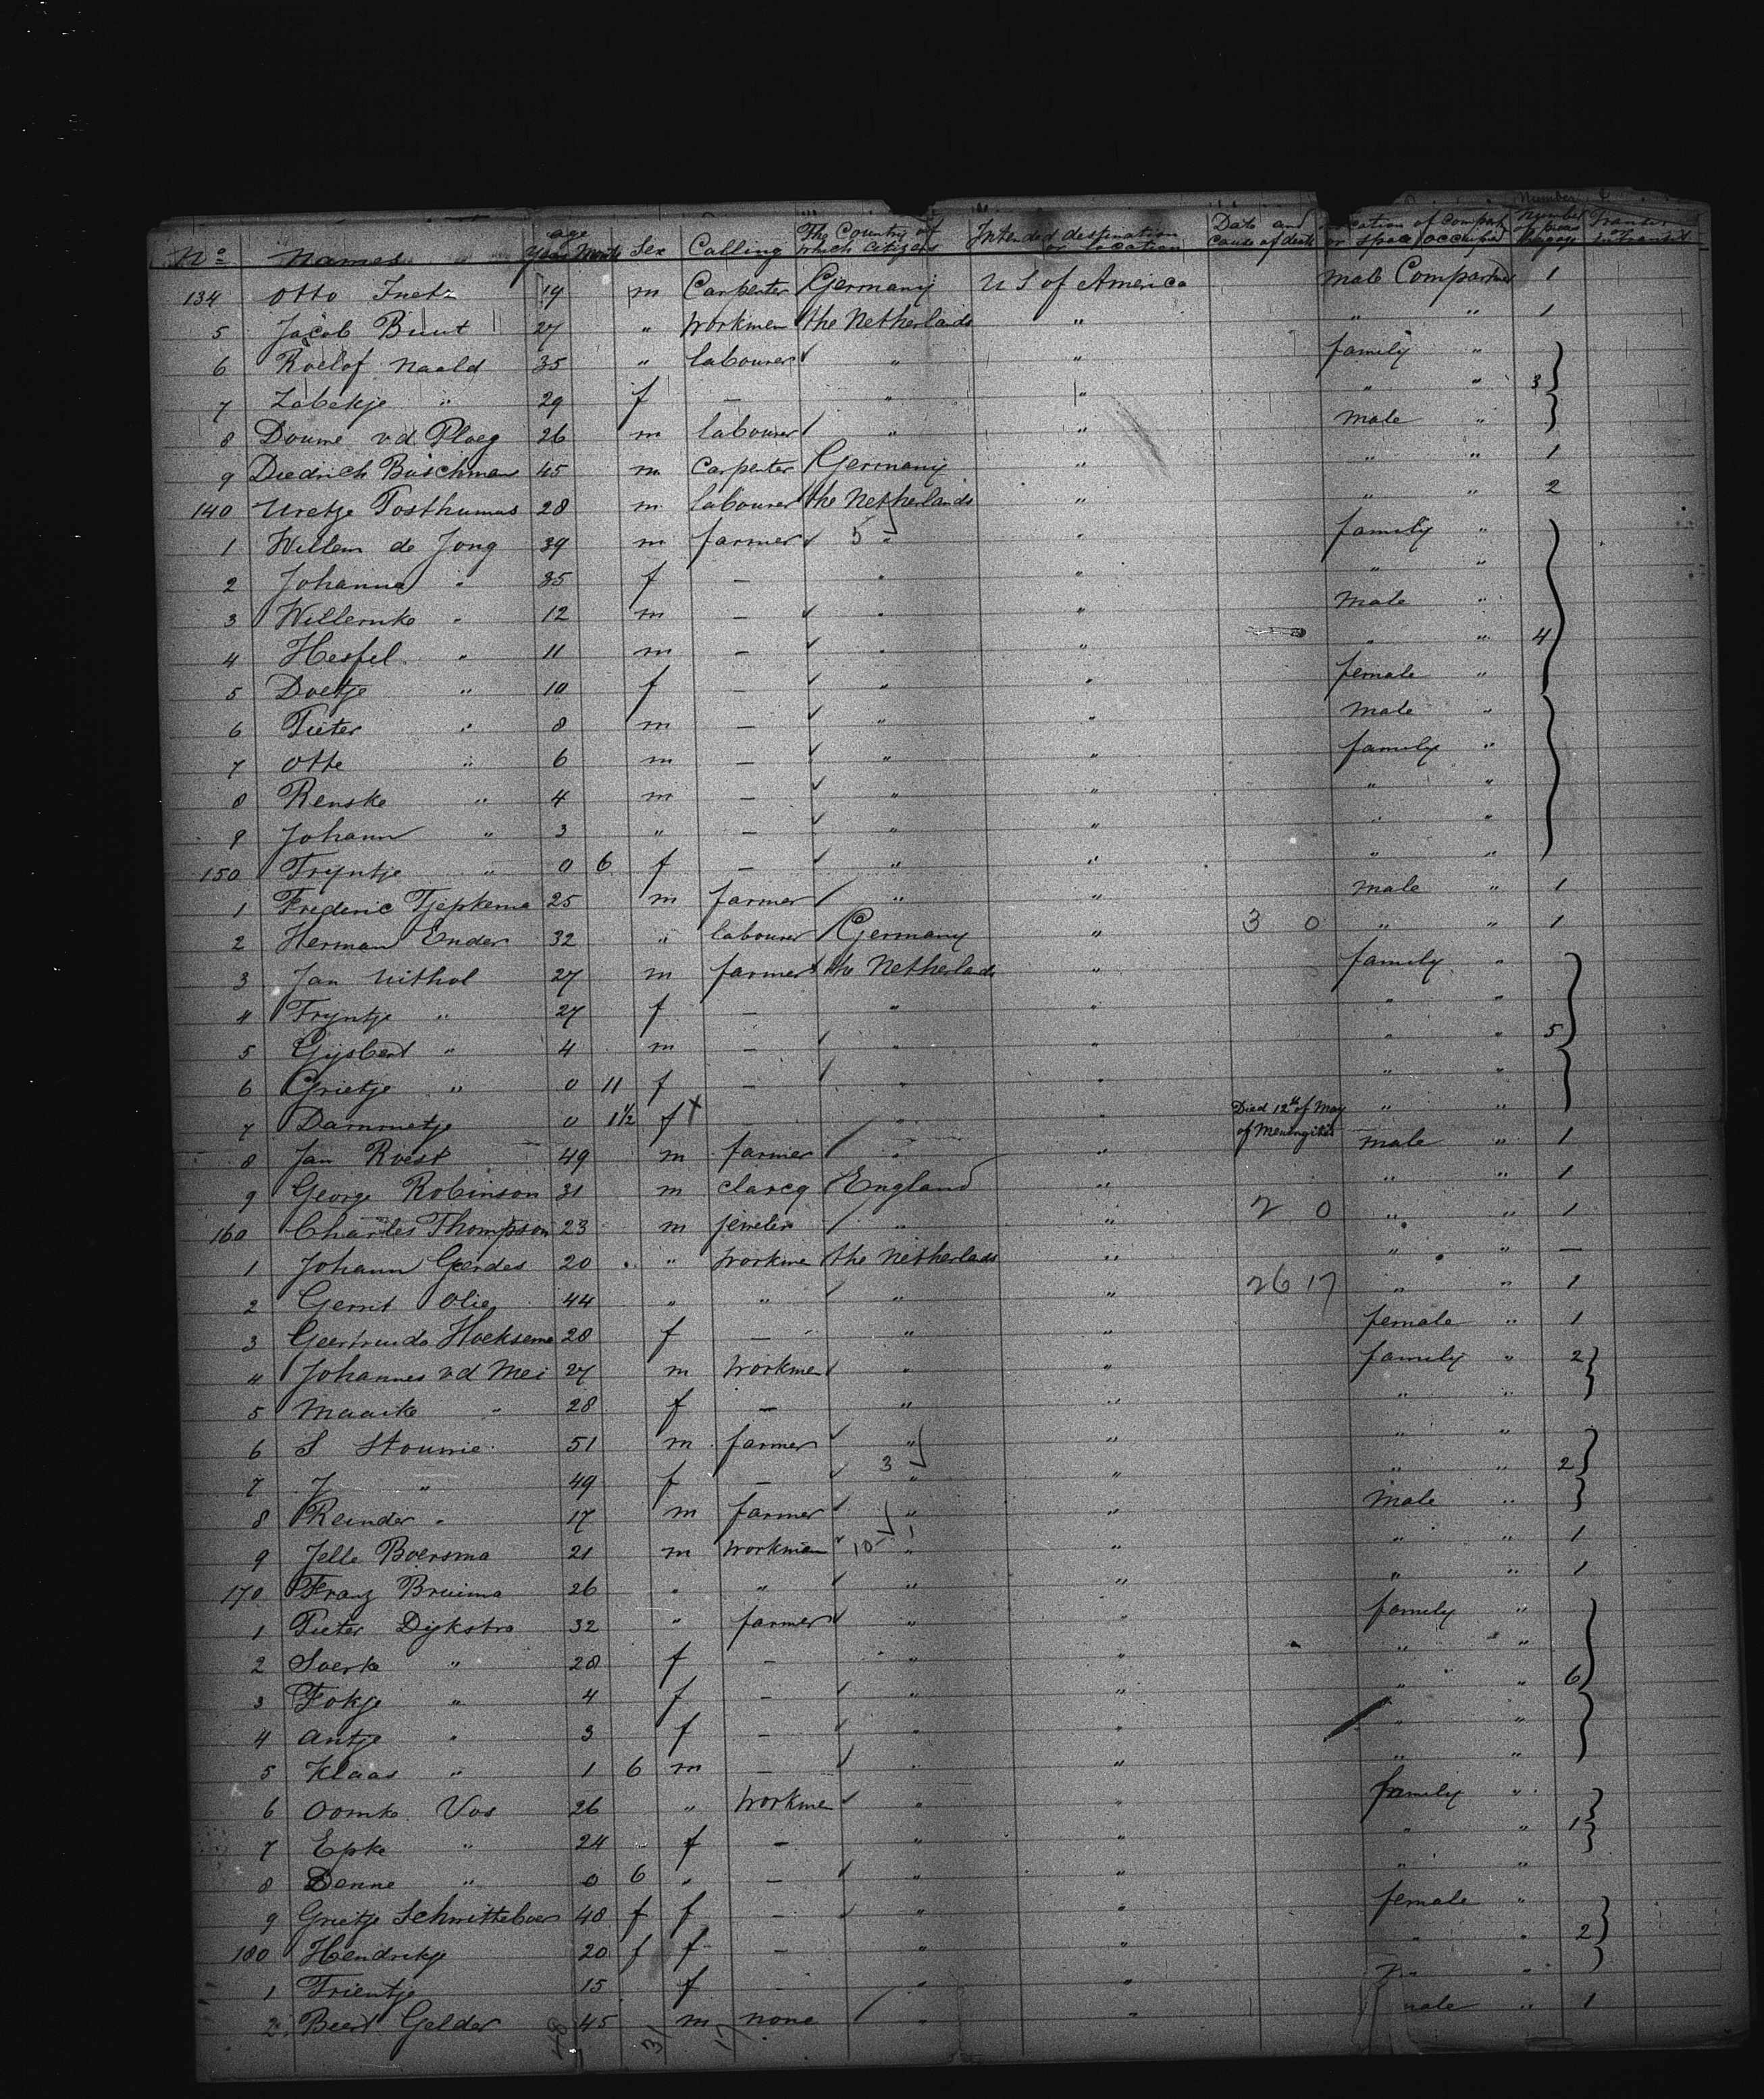 Number
No Names age Years Month Sex Calling The Country of which citizens Intended destination or location Date and cause of death Location of Compart or space occupied Number of pieces Baggage Transit
134 Otto 19 m Carpenter Germany U S of America male Compartment 1
5 Jacob Buut 27 " workmen the Netherlands " " " 1
6 Roelof Naald 35 " labourer " " family "
7 Labekje " 29 f — " " " " 3
8 Doume vd Ploeg 26 m labourer " " male "
9 Diedrich Buschman 45 m Carpenter Germany " " " 1
140 Uretje Posthumus 28 m labourer the Netherlands " " " 2
1 Willem de Jong 39 m farmer 5 " " family "
2 Johanna " 35 f — " " " "
3 Willemke " 12 m — " " male "
4 Hessel " 11 m — " " " " 4
5 Doetje " 10 f — " " female "
6 Pieter " 8 m — " " male "
7 Otte " 6 m — " " family "
8 Renske " 4 m — " " " "
9 Johann " 3 " — " " " "
150 Tryntje " 0 6 f — " " " "
1 Frederic Tjepkema 25 m farmer " " male " 1
2 Herman Ender 32 " labourer Germany " 3 0 " " 1
3 Jan Uithol 27 m farmer the Netherlands " family "
4 Tryntje " 27 f — " " " "
5 Gijsbert " 4 m — " " " " 5
6 Grietje " 0 11 f — " " " "
7 Dammetje 0 1½ f x " " Died 12th of May of Meningitis " "
8 Jan Roest 49 m farmer " " male " 1
9 George Robinson 31 m clarcq England " " " 1
160 Charles Thompson 23 m jeweler " " 2 0 " " 1
1 Johann Gerdes 20 " workmen the Netherlands " " " —
2 Gerrit Olie 44 " " " " 26 17 " " 1
3 Geertruida Hoeksema 28 f — " " " female " 1
4 Johannes vd Mei 27 m workmen " " family " 2
5 Maaike " 28 f — " " " "
6 S Stoumie 51 m farmer " " " "
7 J " 49 f — 3 " " " " 2
8 Reinder " 17 m farmer " " male "
9 Jelle Boersma 21 m workmen 10 " " " " 1
170 Franz Bruima 26 " " " " " " 1
1 Pieter Dijkstra 32 " farmer " " family "
2 Soerke " 28 f — " " " "
3 Fokje " 4 f — " " " " 6
4 Antje " 3 f — " " " "
5 Klaas " 1 6 m — " " " "
6 Oomke Vos 26 " workmen " " family "
7 Epke " 24 f — " " " " 1
8 Denne " 0 6 " — " " " "
9 Grietje Schnitteboer 48 f f — " " female "
180 Hendrikje 20 f f — " " " " 2
1 Trientje 15 f " " "
2 Beert Gelder 45 m none " " male " 1
31 17